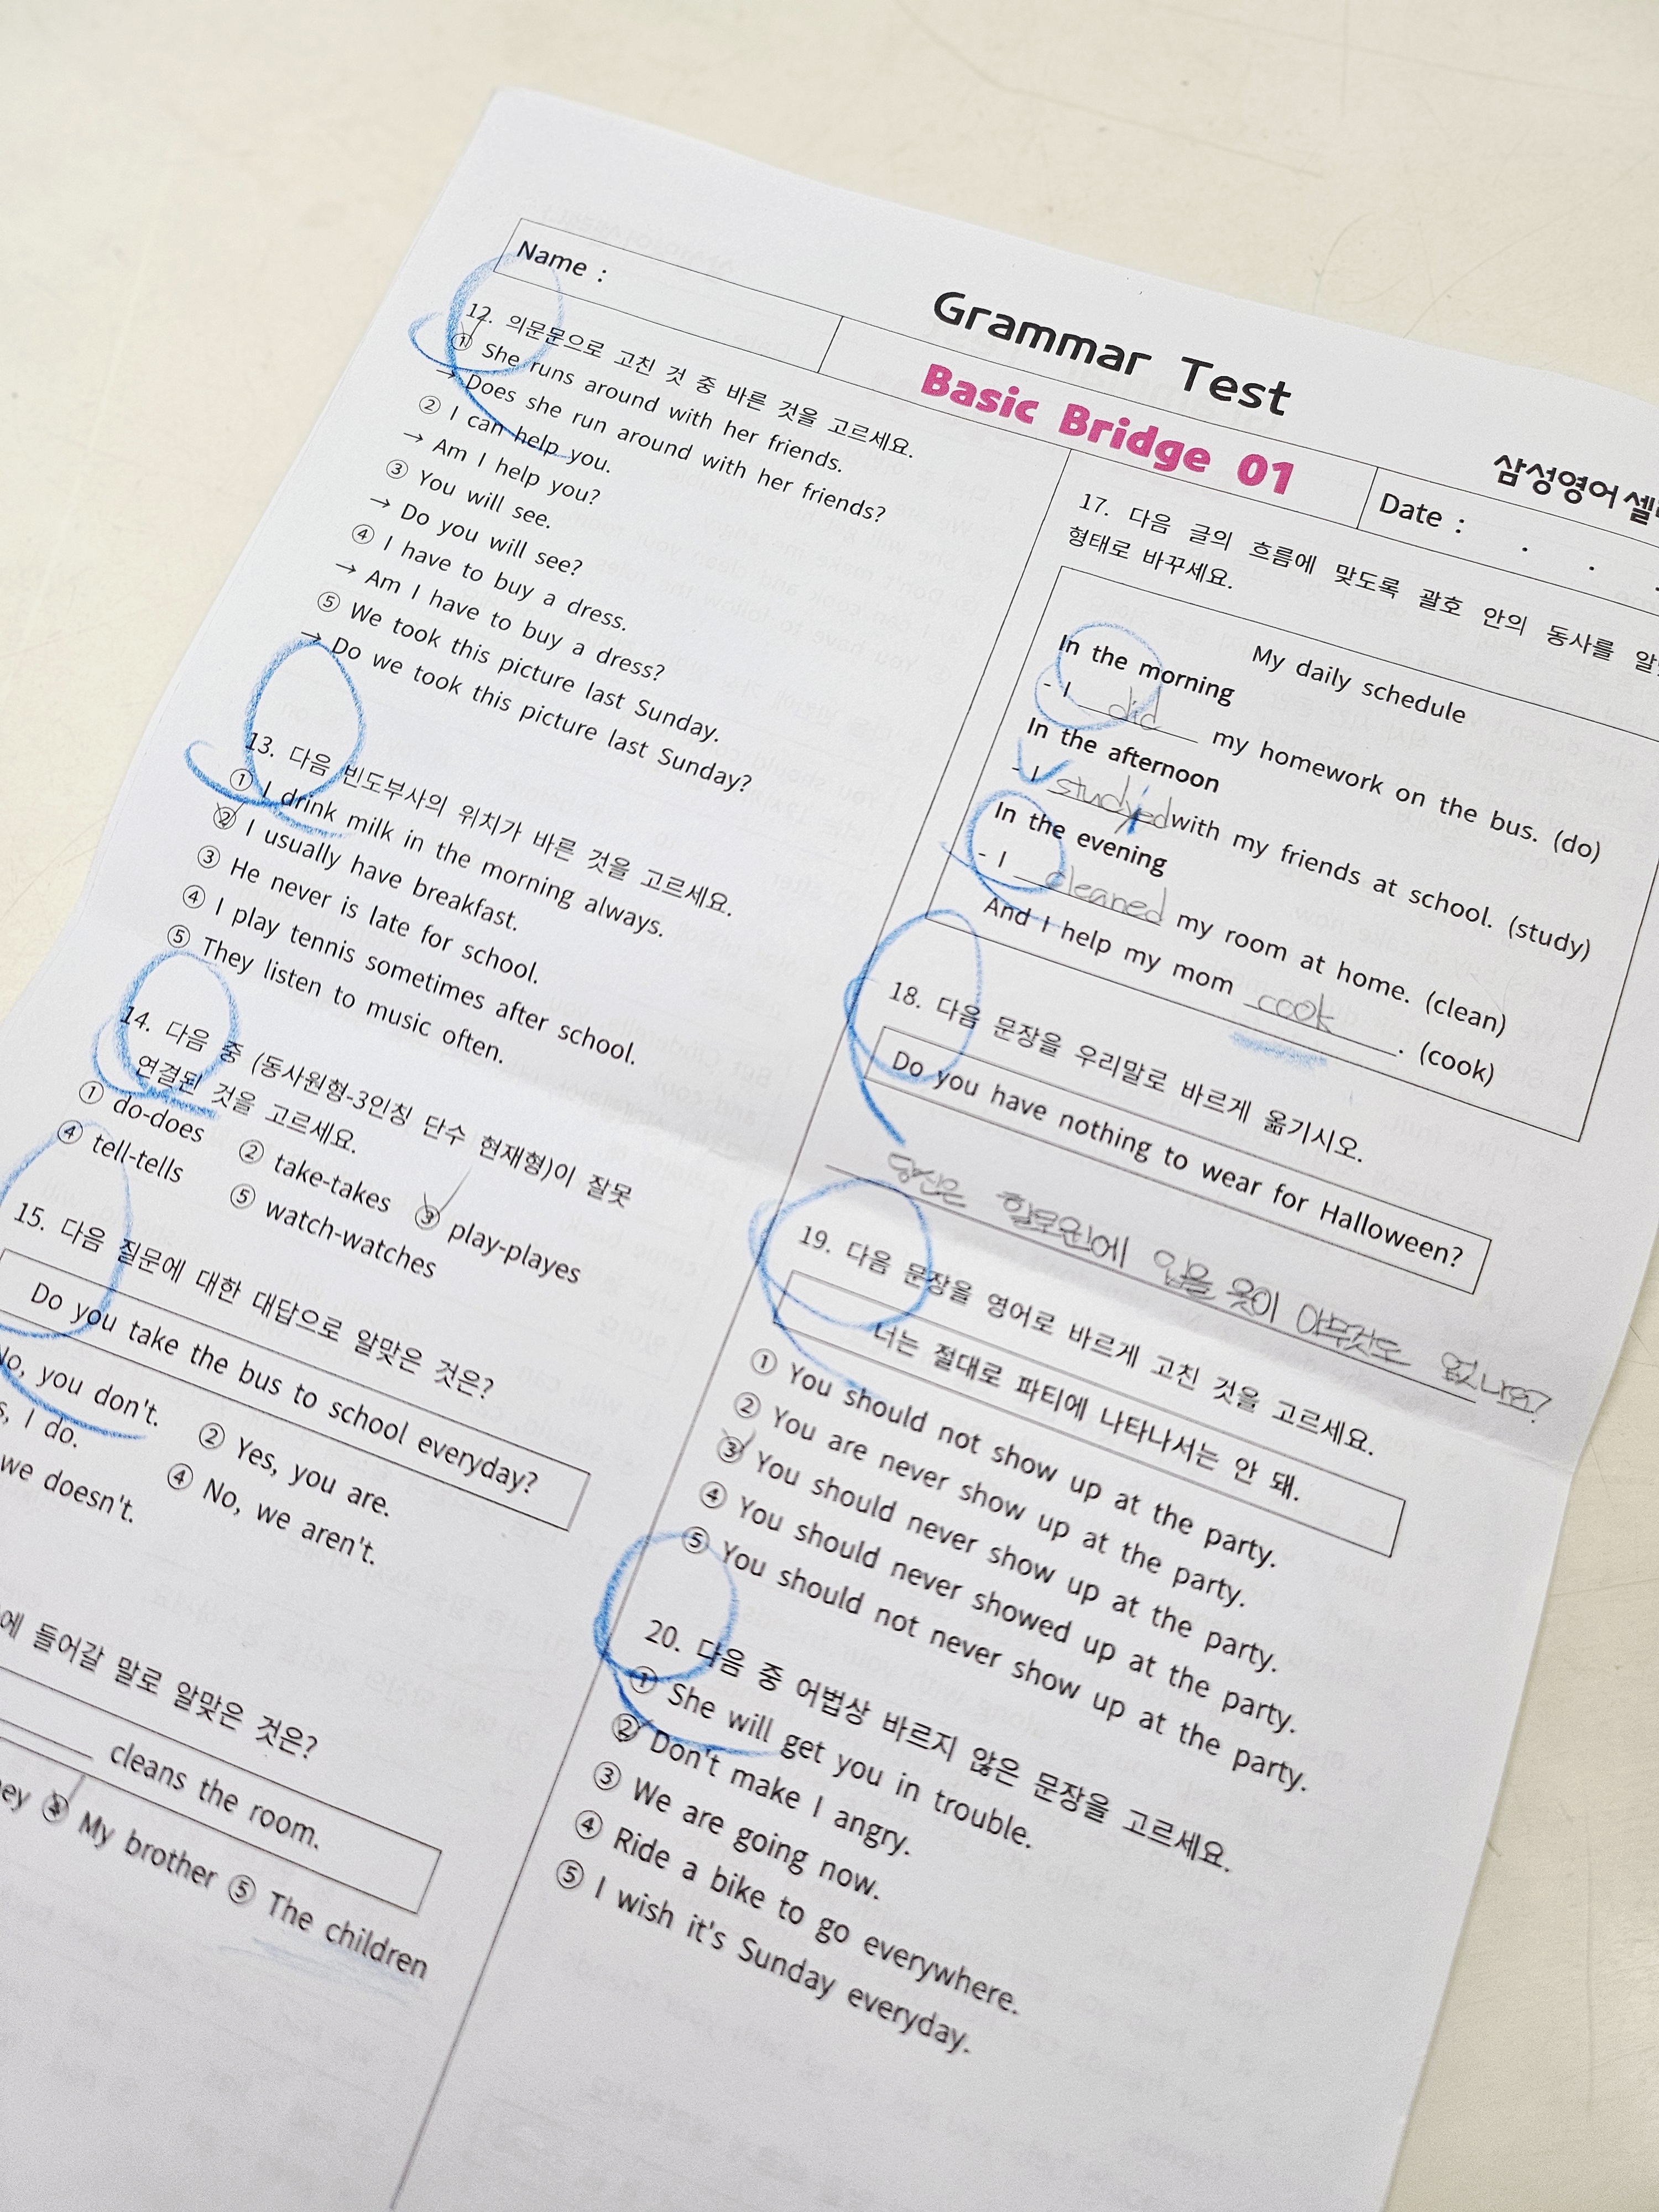 Grammar Test
삼성영어
Name :
Basic Bridge 01
Date : . .
12. 의문문으로 고친 것 중 바른 것을 고르세요.
① She runs around with her friends.
→ Does she run around with her friends?
② I can help you.
→ Am I help you?
③ You will see.
→ Do you will see?
④ I have to buy a dress.
→ Am I have to buy a dress?
⑤ We took this picture last Sunday.
→ Do we took this picture last Sunday?
13. 다음 빈도부사의 위치가 바른 것을 고르세요.
① I drink milk in the morning always.
② I usually have breakfast.
③ He never is late for school.
④ I play tennis sometimes after school.
⑤ They listen to music often.
14. 다음 중 (동사원형-3인칭 단수 현재형)이 잘못
연결된 것을 고르세요.
① do-does ② take-takes ③ play-playes
④ tell-tells ⑤ watch-watches
15. 다음 질문에 대한 대답으로 알맞은 것은?
Do you take the bus to school everyday?
No, you don't. ② Yes, you are.
I do. ④ No, we aren't.
we doesn't.
들어갈 말로 알맞은 것은?
cleans the room.
④ My brother ⑤ The children
17. 다음 글의 흐름에 맞도록 괄호 안의 동사를
형태로 바꾸세요.
My daily schedule
In the morning
- I did my homework on the bus. (do)
In the afternoon
- I studyed with my friends at school. (study)
In the evening
- I cleaned my room at home. (clean)
And I help my mom cook . (cook)
18. 다음 문장을 우리말로 바르게 옮기시오.
Do you have nothing to wear for Halloween?
당신은 할로윈에 입을 옷이 아무것도 없나요?
19. 다음 문장을 영어로 바르게 고친 것을 고르세요.
너는 절대로 파티에 나타나서는 안 돼.
① You should not show up at the party.
② You are never show up at the party.
③ You should never show up at the party.
④ You should never showed up at the party.
⑤ You should not never show up at the party.
20. 다음 중 어법상 바르지 않은 문장을 고르세요.
① She will get you in trouble.
② Don't make I angry.
③ We are going now.
④ Ride a bike to go everywhere.
⑤ I wish it's Sunday everyday.